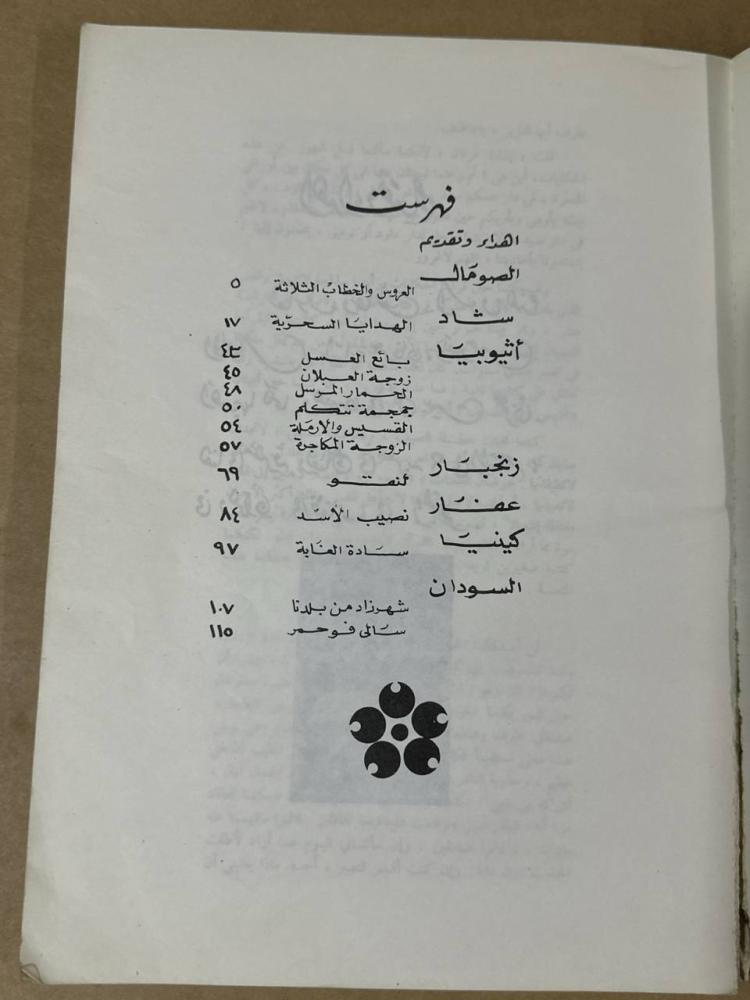 فهرست
اهداء وتقديم
الصومال
العروس والخطاب الثلاثة ٥
تشاد
الهدايا السحرية ١٧
أثيوبيا
بائع العسل ٤٣
زوجة العبلان ٤٥
الحمار المرسل ٤٨
جمجمة تتكلم ٥٠
القسيس والارملة ٥٤
الزوجة المكاجرة ٥٧
زنجبار
لنقو ٦٩
عفار
نصيب الأسد ٨٤
كينيا
سادة الغابة ٩٧
السودان
شهرزاد من بلدنا ١٠٧
سالى فو حمر ١١٥